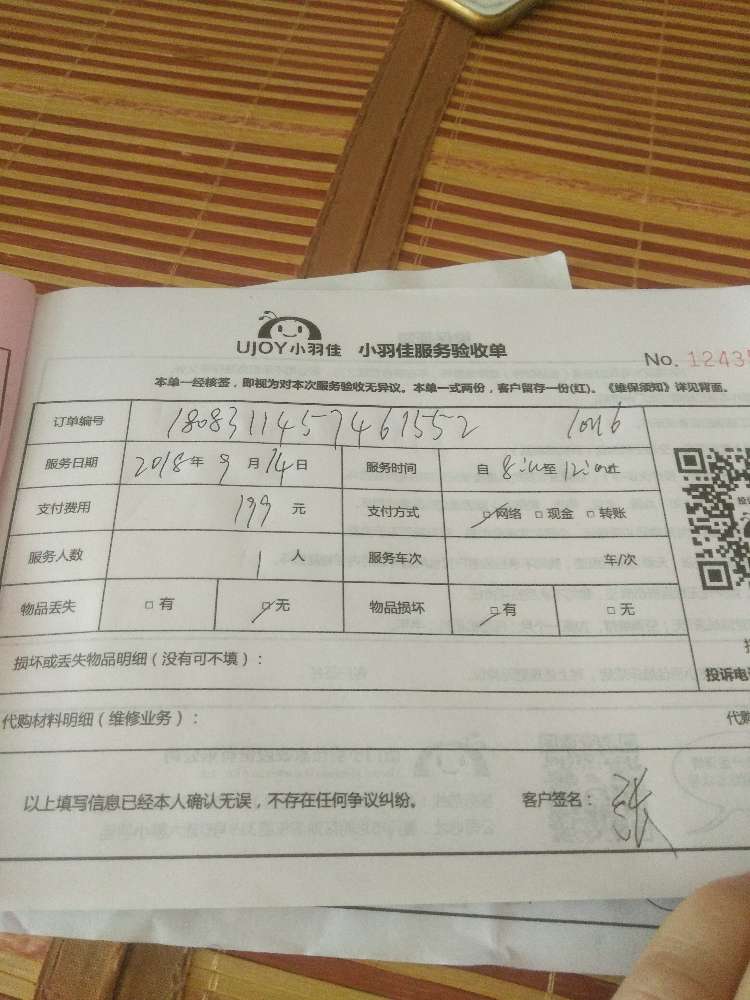 UJOY小羽佳 小羽佳服务验收单
No. 1243
本单一经核签，即视为对本次服务验收无异议。本单一式两份，客户留存一份(红)。《维保须知》详见背面。
订单编号 1808311457461552
服务日期 2018年9月14日 服务时间 自8:00至12:00止
支付费用 199元 支付方式 □网络 □现金 □转账
服务人数 1人 服务车次 车/次
物品丢失 □有 □无 物品损坏 □有 □无
损坏或丢失物品明细（没有可不填）：
投诉电
代购材料明细（维修业务）： 代购
以上填写信息已经本人确认无误，不存在任何争议纠纷。 客户签名：张